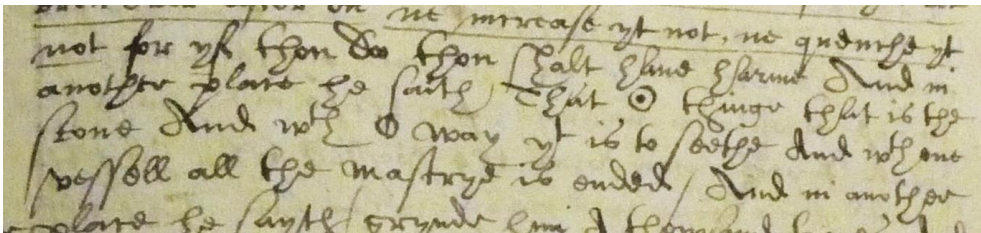 ne increase yt not, ne quenche yt
not for yf thou do thou shalt have harme And in
another place he saith / That ☉ thinge that is the
stone And wth O way yt is to seethe And wth one
vessell all the mastrye is ended / And in another
place he sayth / grynde him A thousand